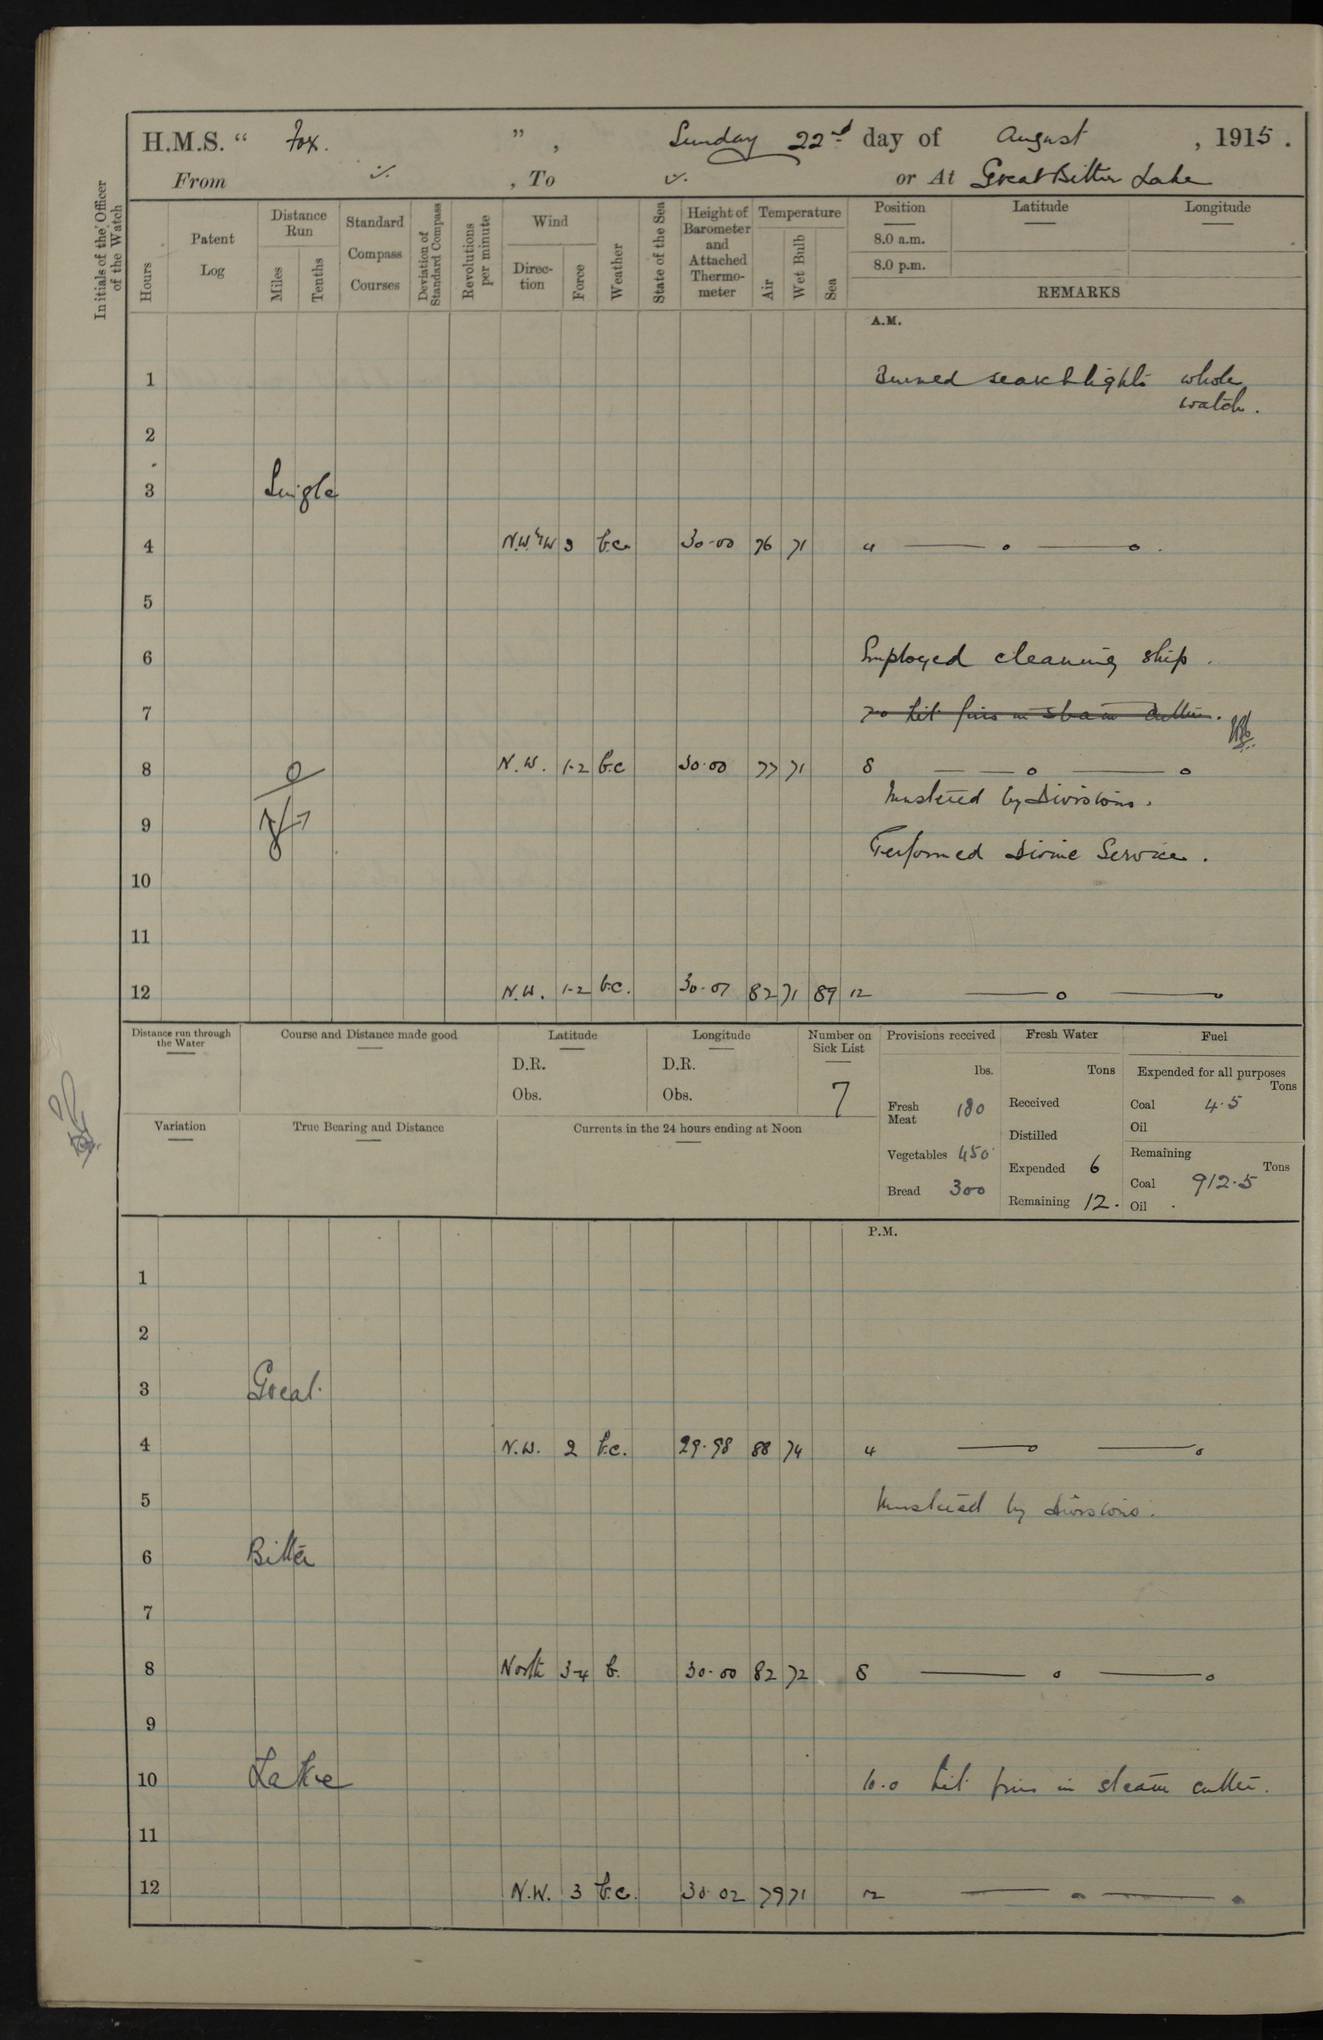 H.M.S. “ Fox. ” , Sunday 22nd day of August , 1915.
From , To or At Great Bitter Lake
Initials of the Officer of the Watch
Hours
Patent Log
Distance Run
Miles
Tenths
Standard Compass Courses
Deviation of Standard Compass
Revolutions per minute
Wind
Direction
Force
Weather
State of the Sea
Height of Barometer and Attached Thermometer
Temperature
Air
Wet Bulb
Sea
Position Latitude Longitude
8.0 a.m.
8.0 p.m.
REMARKS
A.M.
1 Burned searchlights whole
watch.
2
3 Single
4 N.W.'ly W 3 b.c. 30.00 76 71 4
5
6 Employed cleaning ship.
7 7.0 Lit fires in steam cutter.
8 N.W. 1-2 b.c 30.00 77 71 8
Mustered by Divisions.
9
Performed Divine Service.
10
11
12 N.W. 1-2 b.c. 30.07 82 71 89 12
Distance run through the Water
Course and Distance made good
Latitude
D.R.
Obs.
Longitude
D.R.
Obs.
Number on Sick List
7
Provisions received
lbs.
Fresh Meat 180
Vegetables 450
Bread 300
Fresh Water
Tons
Received
Distilled
Expended 6
Remaining 12.
Fuel
Expended for all purposes
Tons
Coal 4.5
Oil
Remaining
Tons
Coal 912.5
Oil
Variation
True Bearing and Distance
Currents in the 24 hours ending at Noon
P.M.
1
2
3 Great
4 N.W. 2 b.c. 29.98 88 74 4
5 Mustered by Divisions.
6 Bitter
7
8 North 3-4 b. 30.00 82 72 8
9
10 Lake 10.0 Lit fires in steam cutter.
11
12 N.W. 3 b.c. 30.02 79 71 12